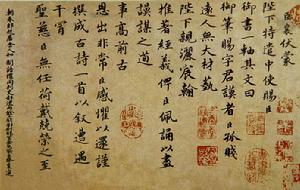 臣襄伏蒙
陛下特遣中使賜臣
御書一軸其文曰
御筆賜字君謨者臣孤賤
遠人無大材藝
陛下親灑宸翰
推著經義俾臣佩誦以盡
謨謀之道
事高前古
恩出非常臣感懼以還謹
撰成古詩一首以敘遭遇
干冒
聖慈臣無任荷戴兢榮之至
朝奉郎起居舍人知制誥